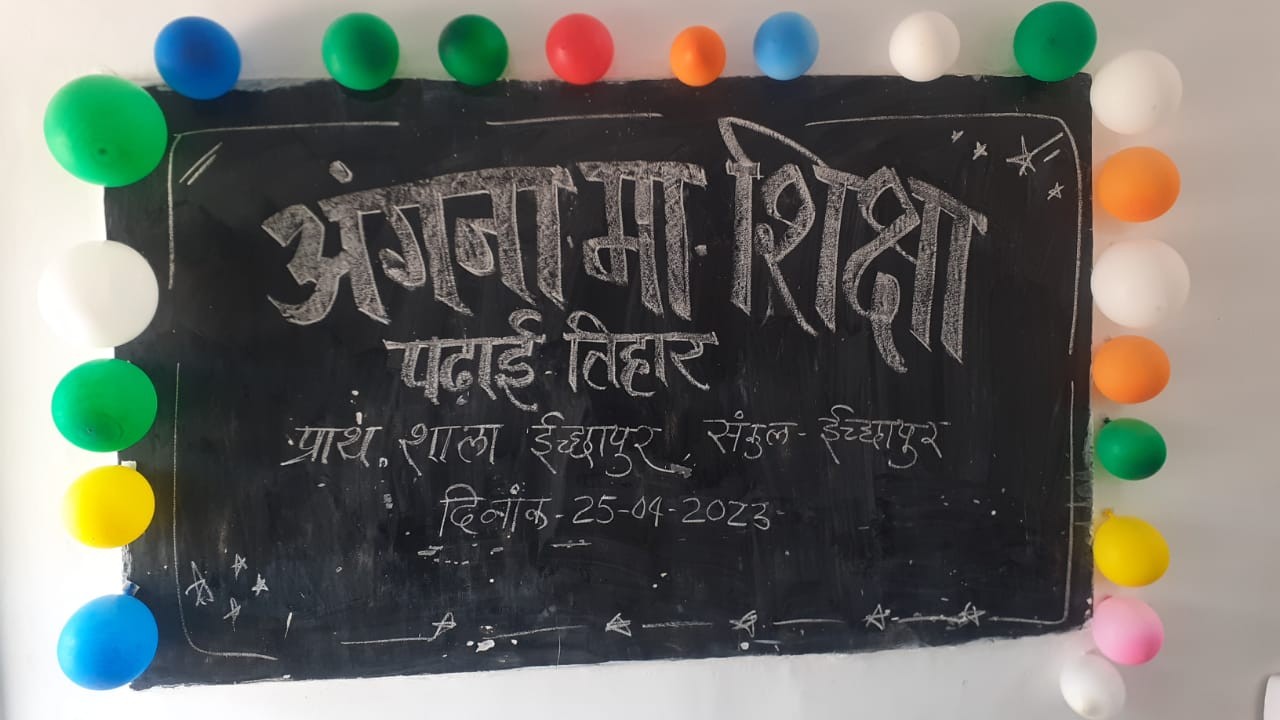 अंगना मा शिक्षा
पढ़ाई तिहार
प्राथ. शाला ईच्छापुर, संकुल - ईच्छापुर
दिनांक - 25-04-2023